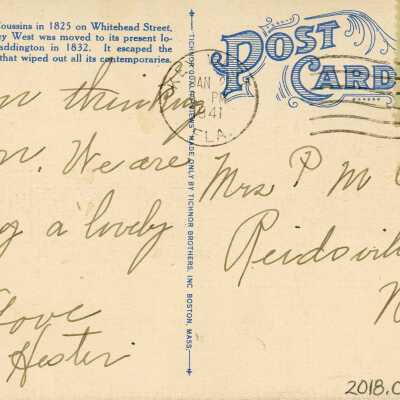 Coussins in 1825 on Whitehead Street,
ey West was moved to its present lo-
addington in 1832. It escaped the
that wiped out all its contemporaries.
n thinking
n. We are
g a lovely
Love
Hester
TICHNOR QUALITY VIEWS, MADE ONLY BY TICHNOR BROTHERS, INC. BOSTON, MASS.
POST
CARD
JAN 2
PM
1941
FLA.
Mrs P M
Reidsvil
N
2018.0